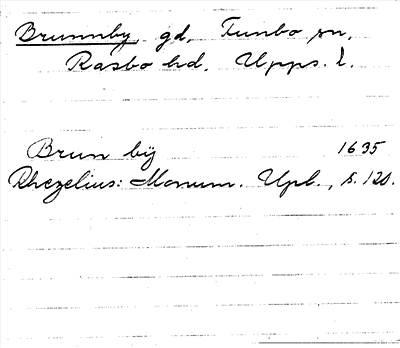 Brunnby gd, Funbo sn,
Rasbo hd. Upps. l.
Brun bÿ 1635
Rhezelius: Monum. Upl., s. 120.